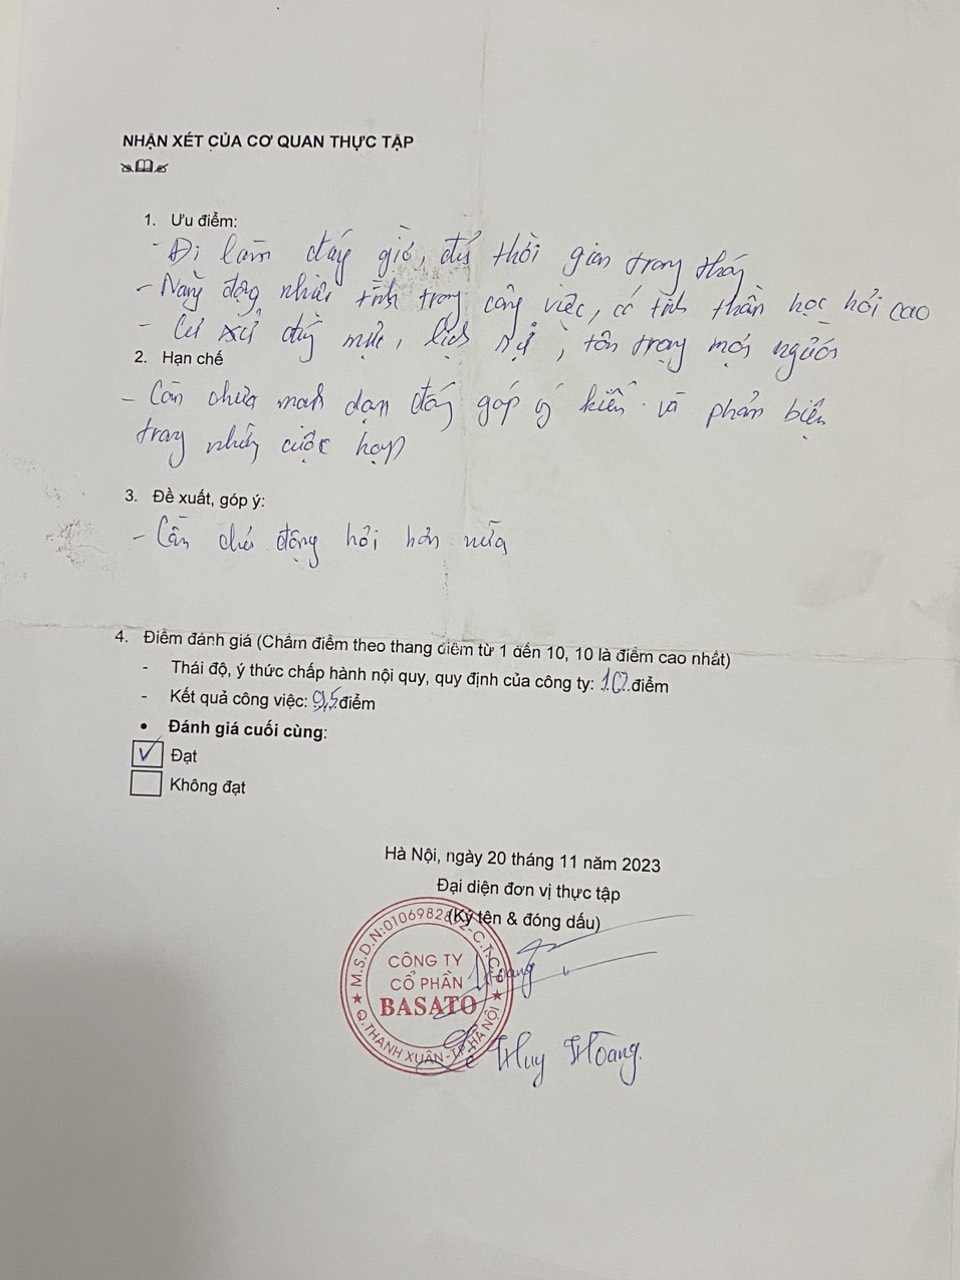 NHẬN XÉT CỦA CƠ QUAN THỰC TẬP
1. Ưu điểm:
- Đi làm đúng giờ, đủ thời gian trong tháng
- Năng động nhiệt tình trong công việc, có tinh thần học hỏi cao
- Cư xử đúng mực, lịch sự, tôn trọng mọi người
2. Hạn chế
- Còn chưa mạnh dạn đóng góp ý kiến và phản biện
trong những cuộc họp
3. Đề xuất, góp ý:
- Cần chủ động hỏi hơn nữa
4. Điểm đánh giá (Chấm điểm theo thang điểm từ 1 đến 10, 10 là điểm cao nhất)
- Thái độ, ý thức chấp hành nội quy, quy định của công ty: 10 điểm
- Kết quả công việc: 9,5 điểm
• Đánh giá cuối cùng:
Đạt
Không đạt
Hà Nội, ngày 20 tháng 11 năm 2023
Đại diện đơn vị thực tập
(Ký tên & đóng dấu)
M.S.D.N: C.T.C.P
CÔNG TY
CỔ PHẦN
BASATO
Q. THANH XUÂN - TP. HÀ NỘI
Hoàng
Lê Huy Hoàng.